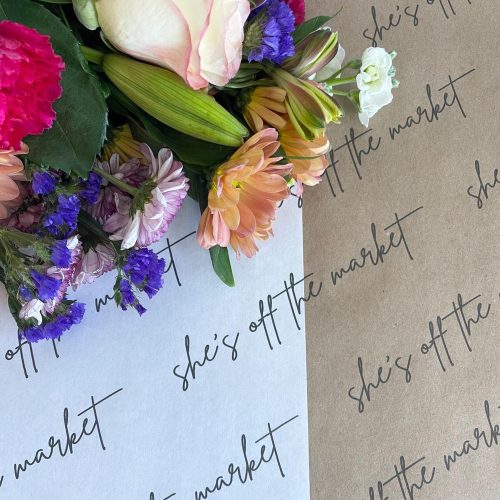 she's off the market
she's off the market
she's
market
she's off the market
she's off the market
market
she's off the market
market
she's off the market